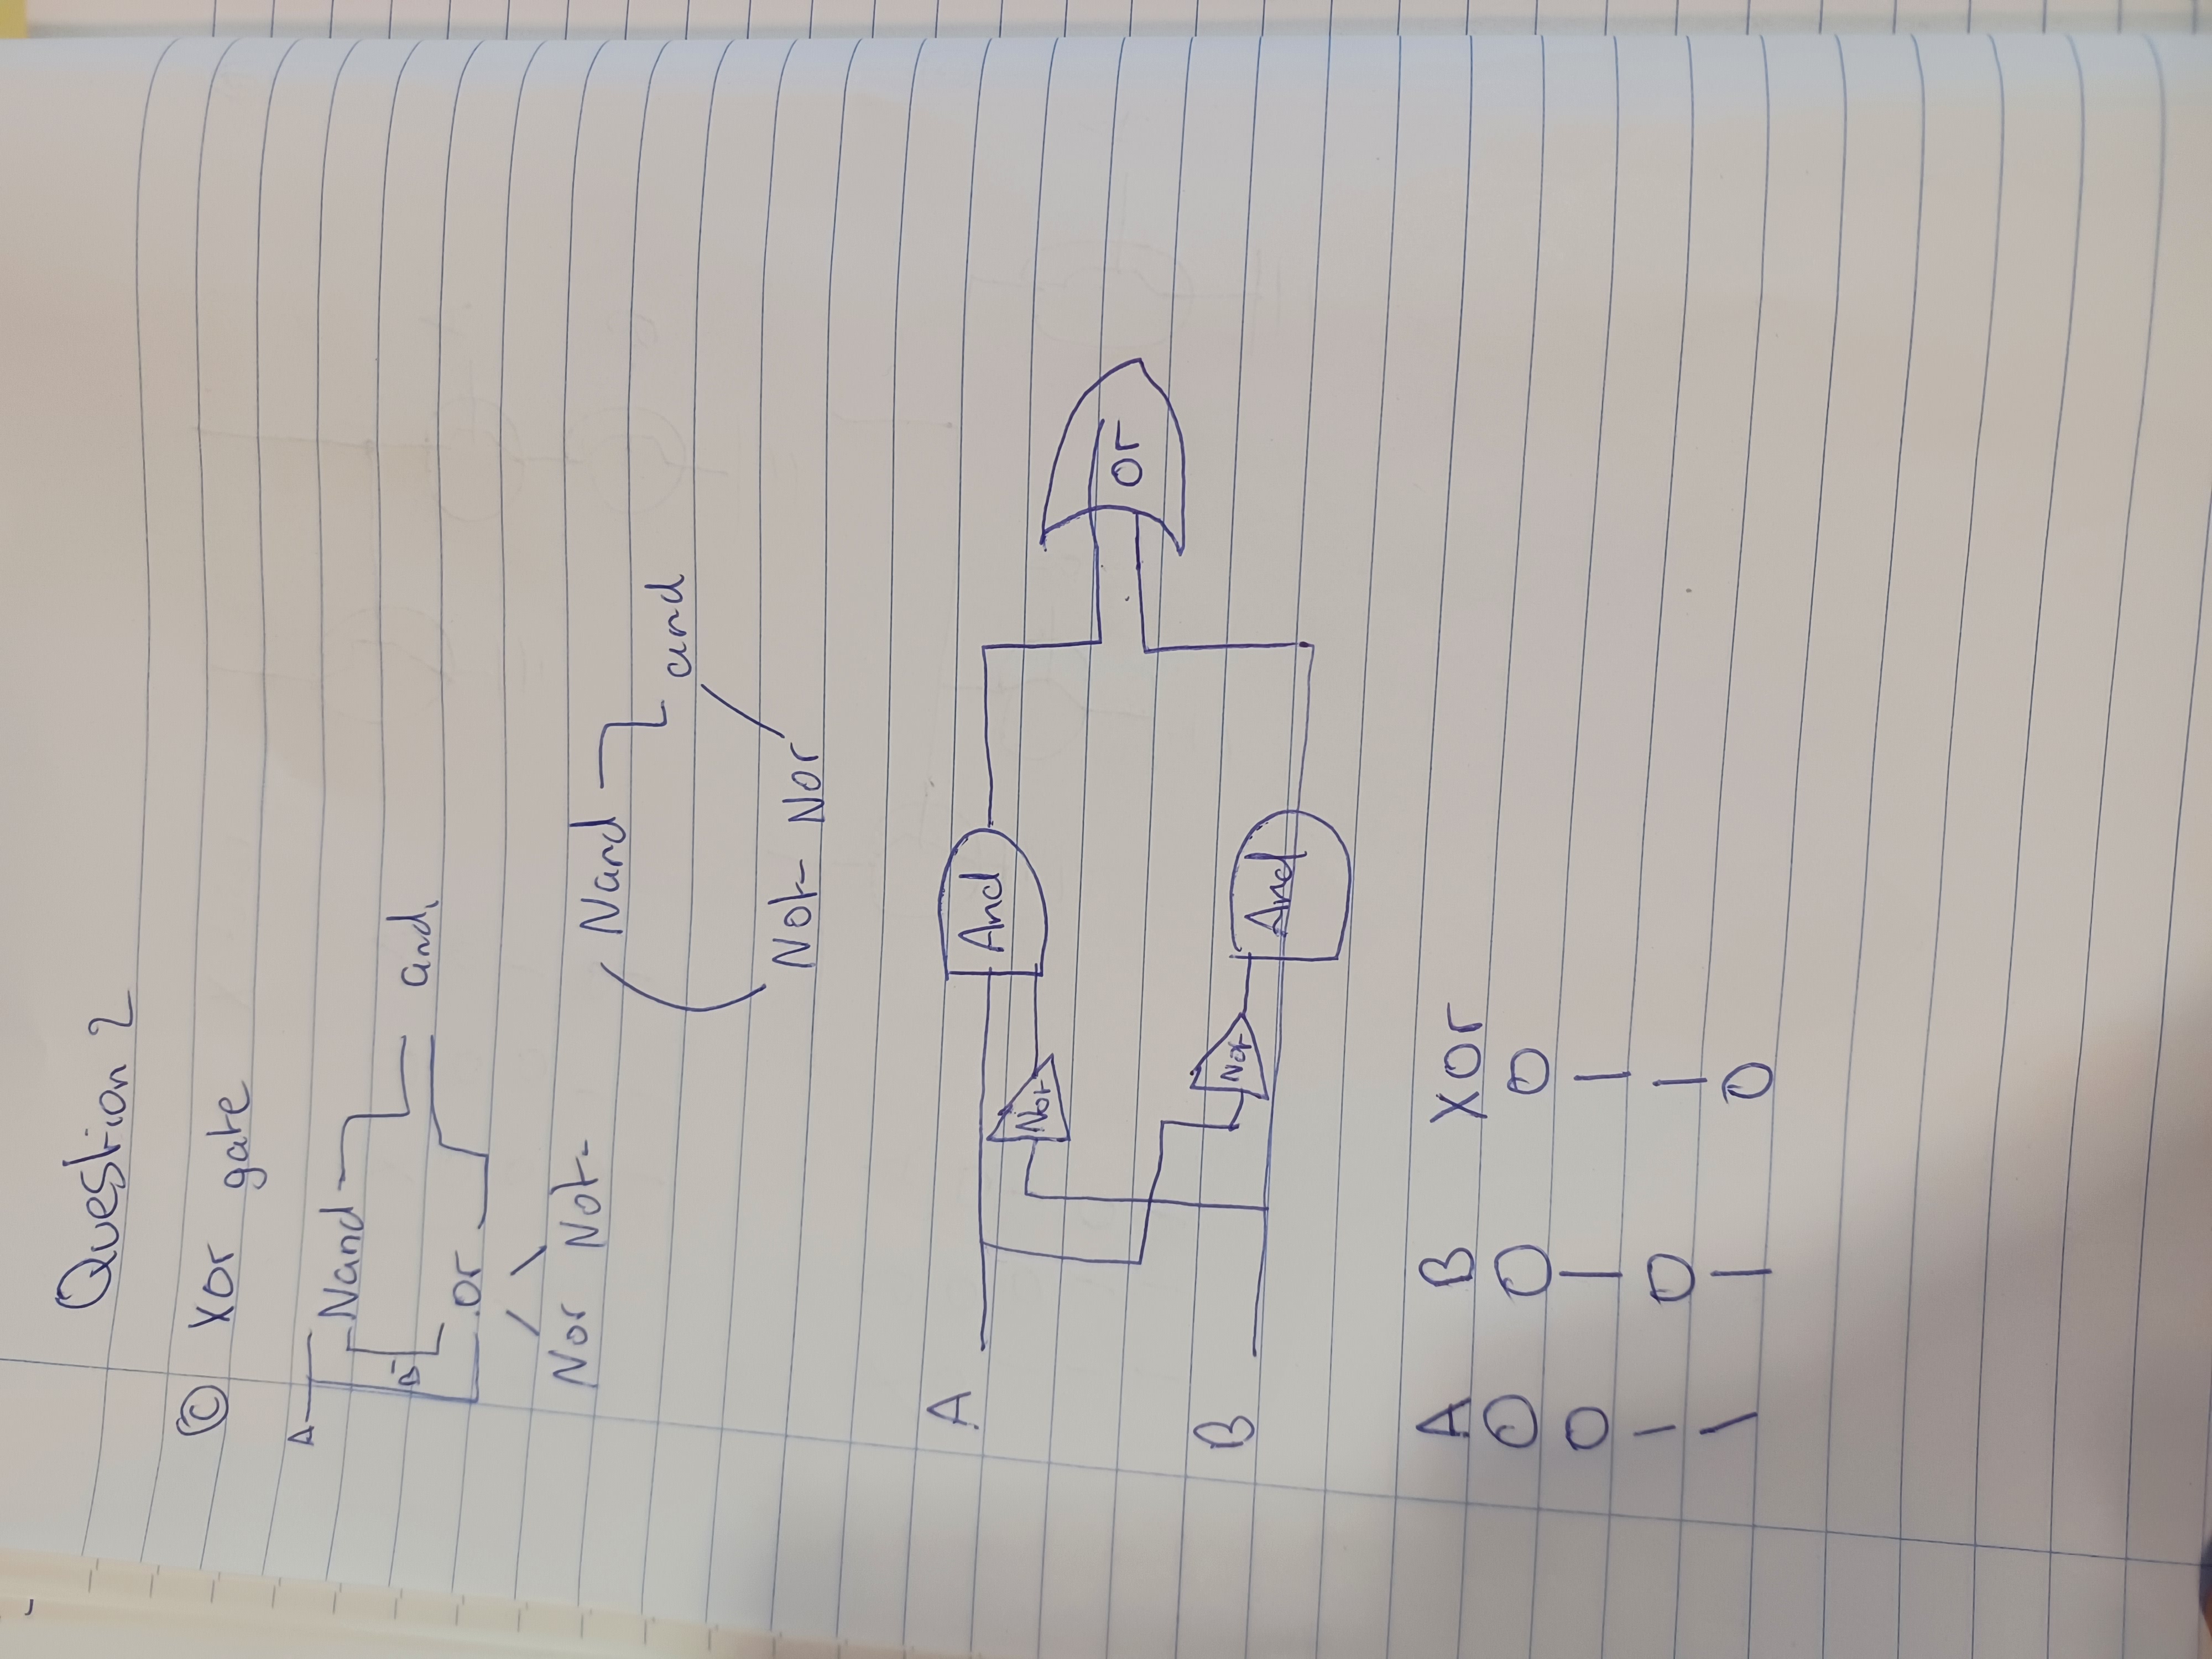 Question 2
© Xor gate
A
Nand
B
and
or
Nor Not
Nand
and
Not Nor
A
And
Not
or
B
Not
And
A B Xor
0 0 0
0 1 1
1 0 1
1 1 0